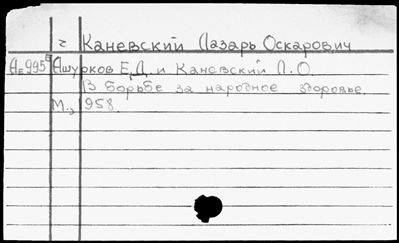 2 Каневский Лазарь Оскарович
Ае995 Ашурков Е.Д. и Каневский Л.О.
В борьбе за народное здоровье.
М., 1958.